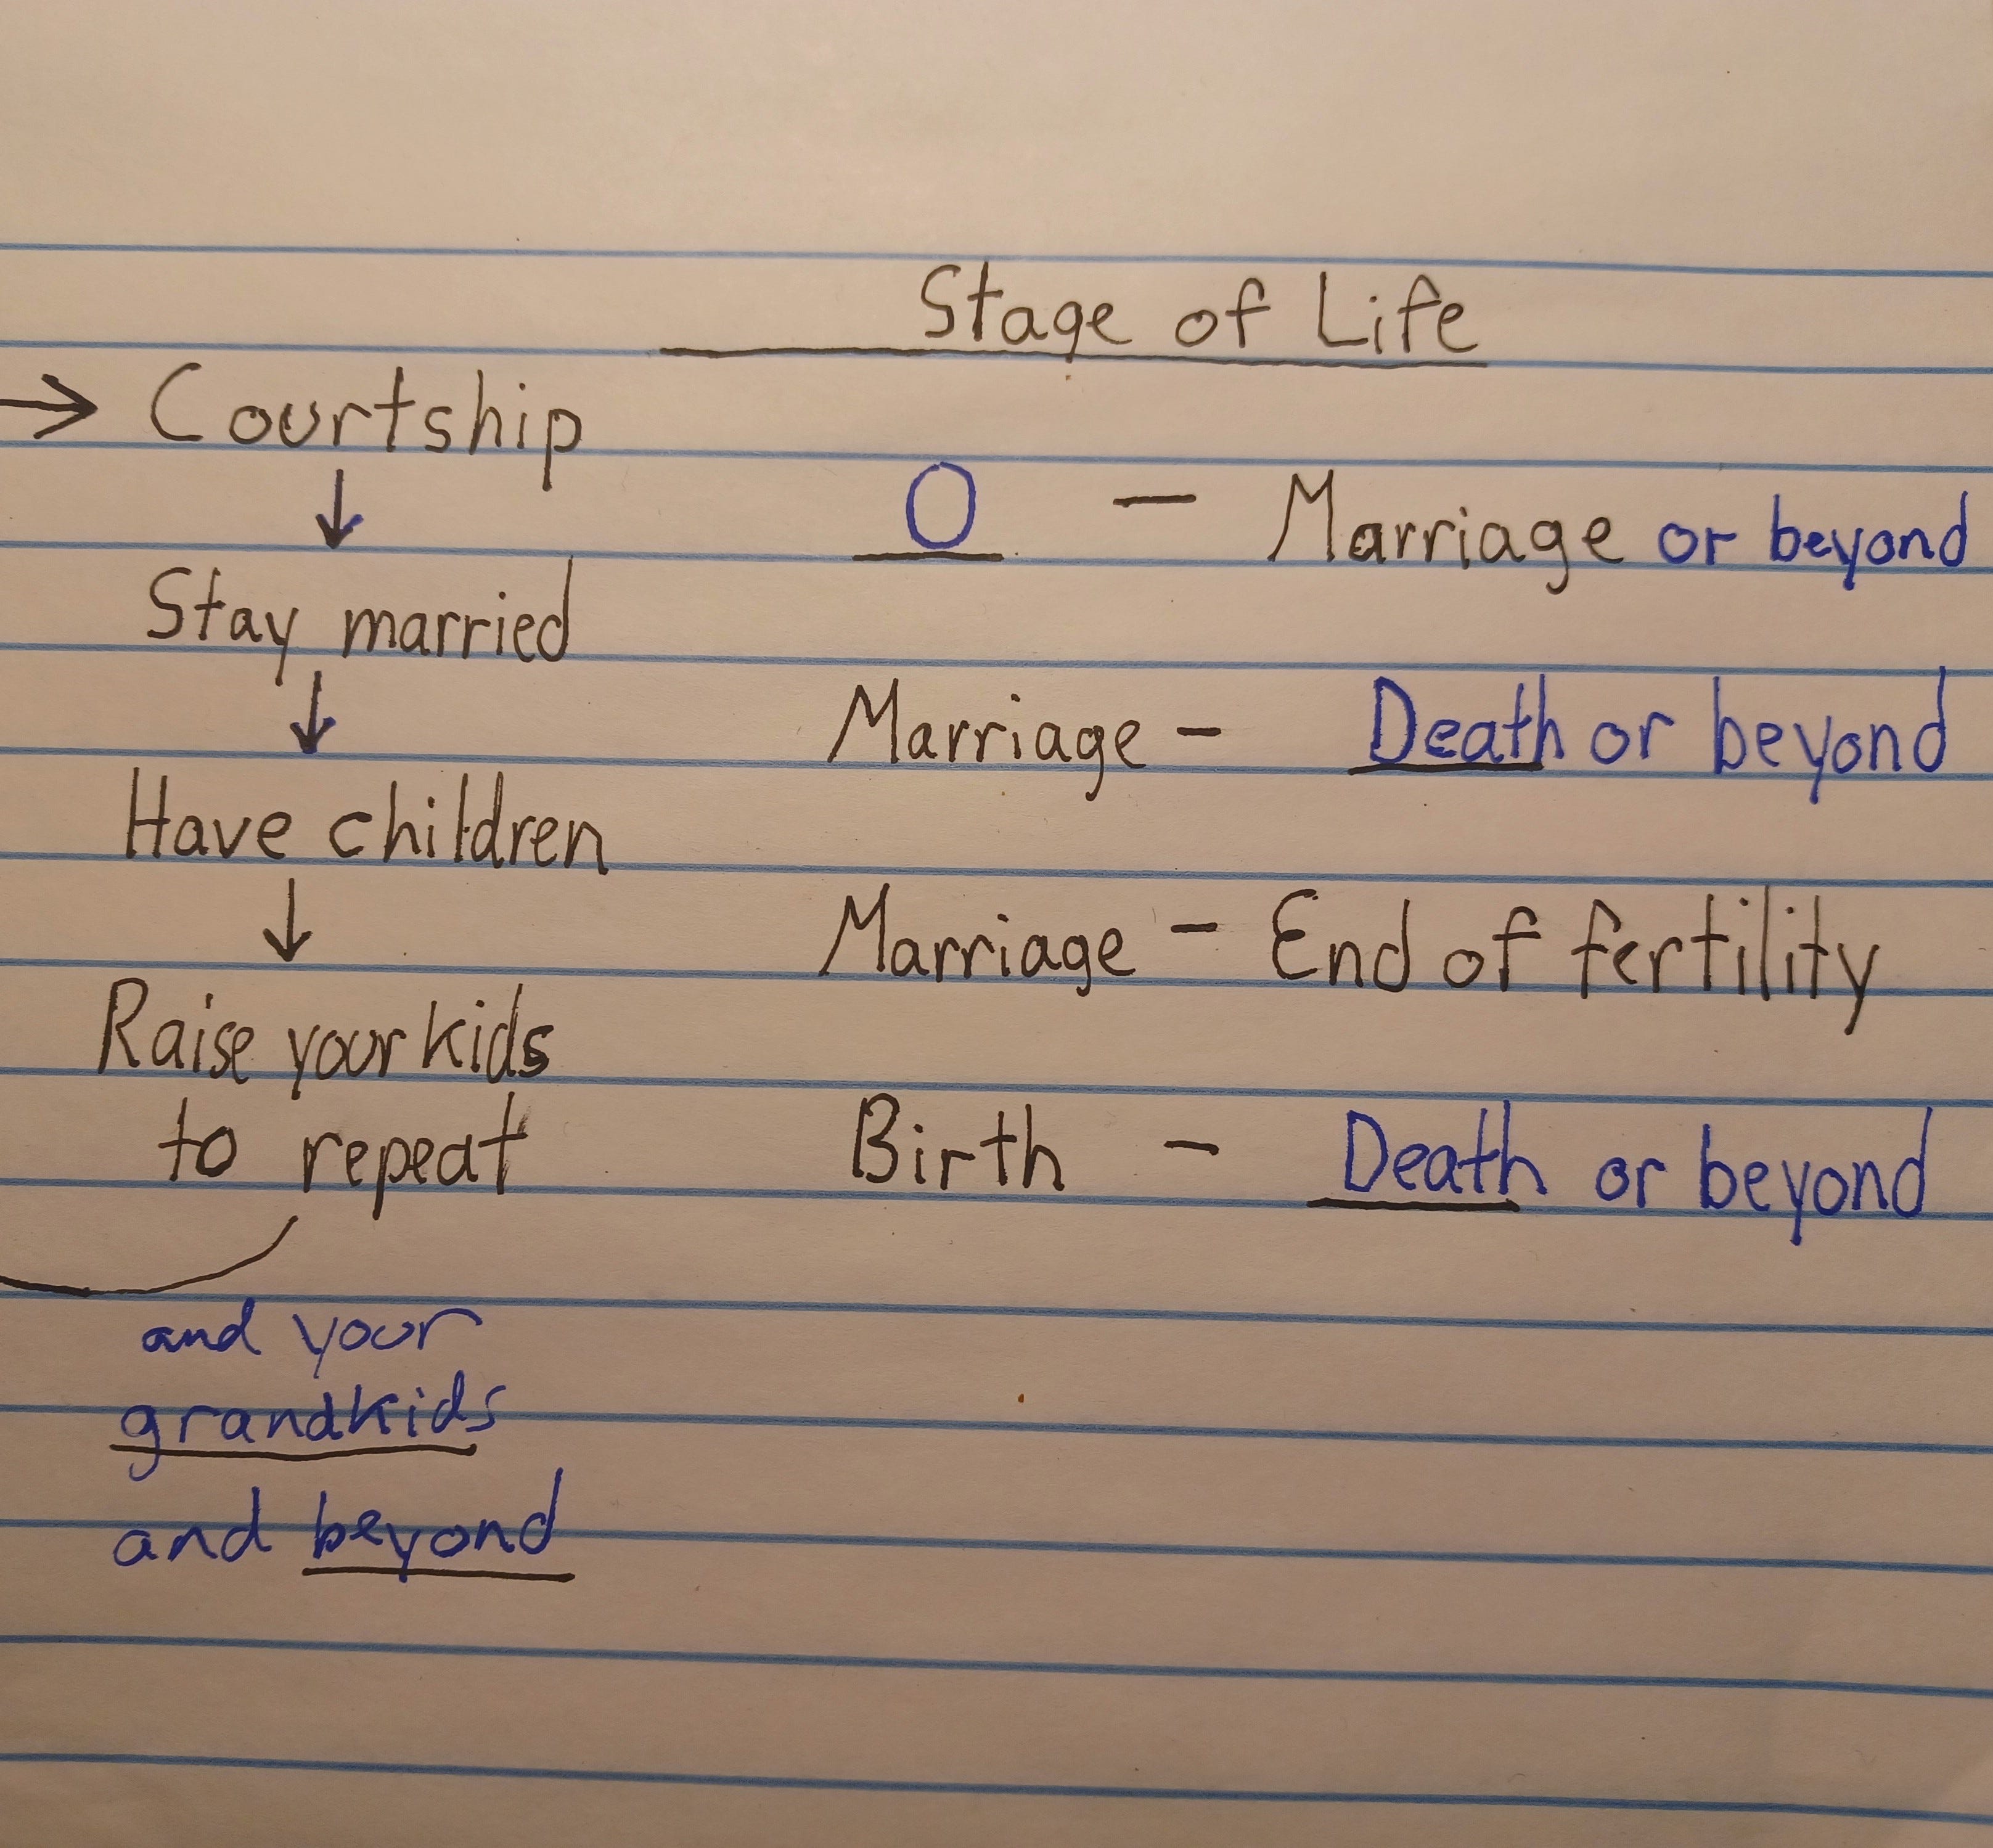 Stage of Life
→ Courtship
↓
O — Marriage or beyond
Stay married
↓
Marriage - Death or beyond
Have children
↓
Marriage - End of fertility
Raise your kids
to repeat
Birth - Death or beyond
and your
grandkids
and beyond